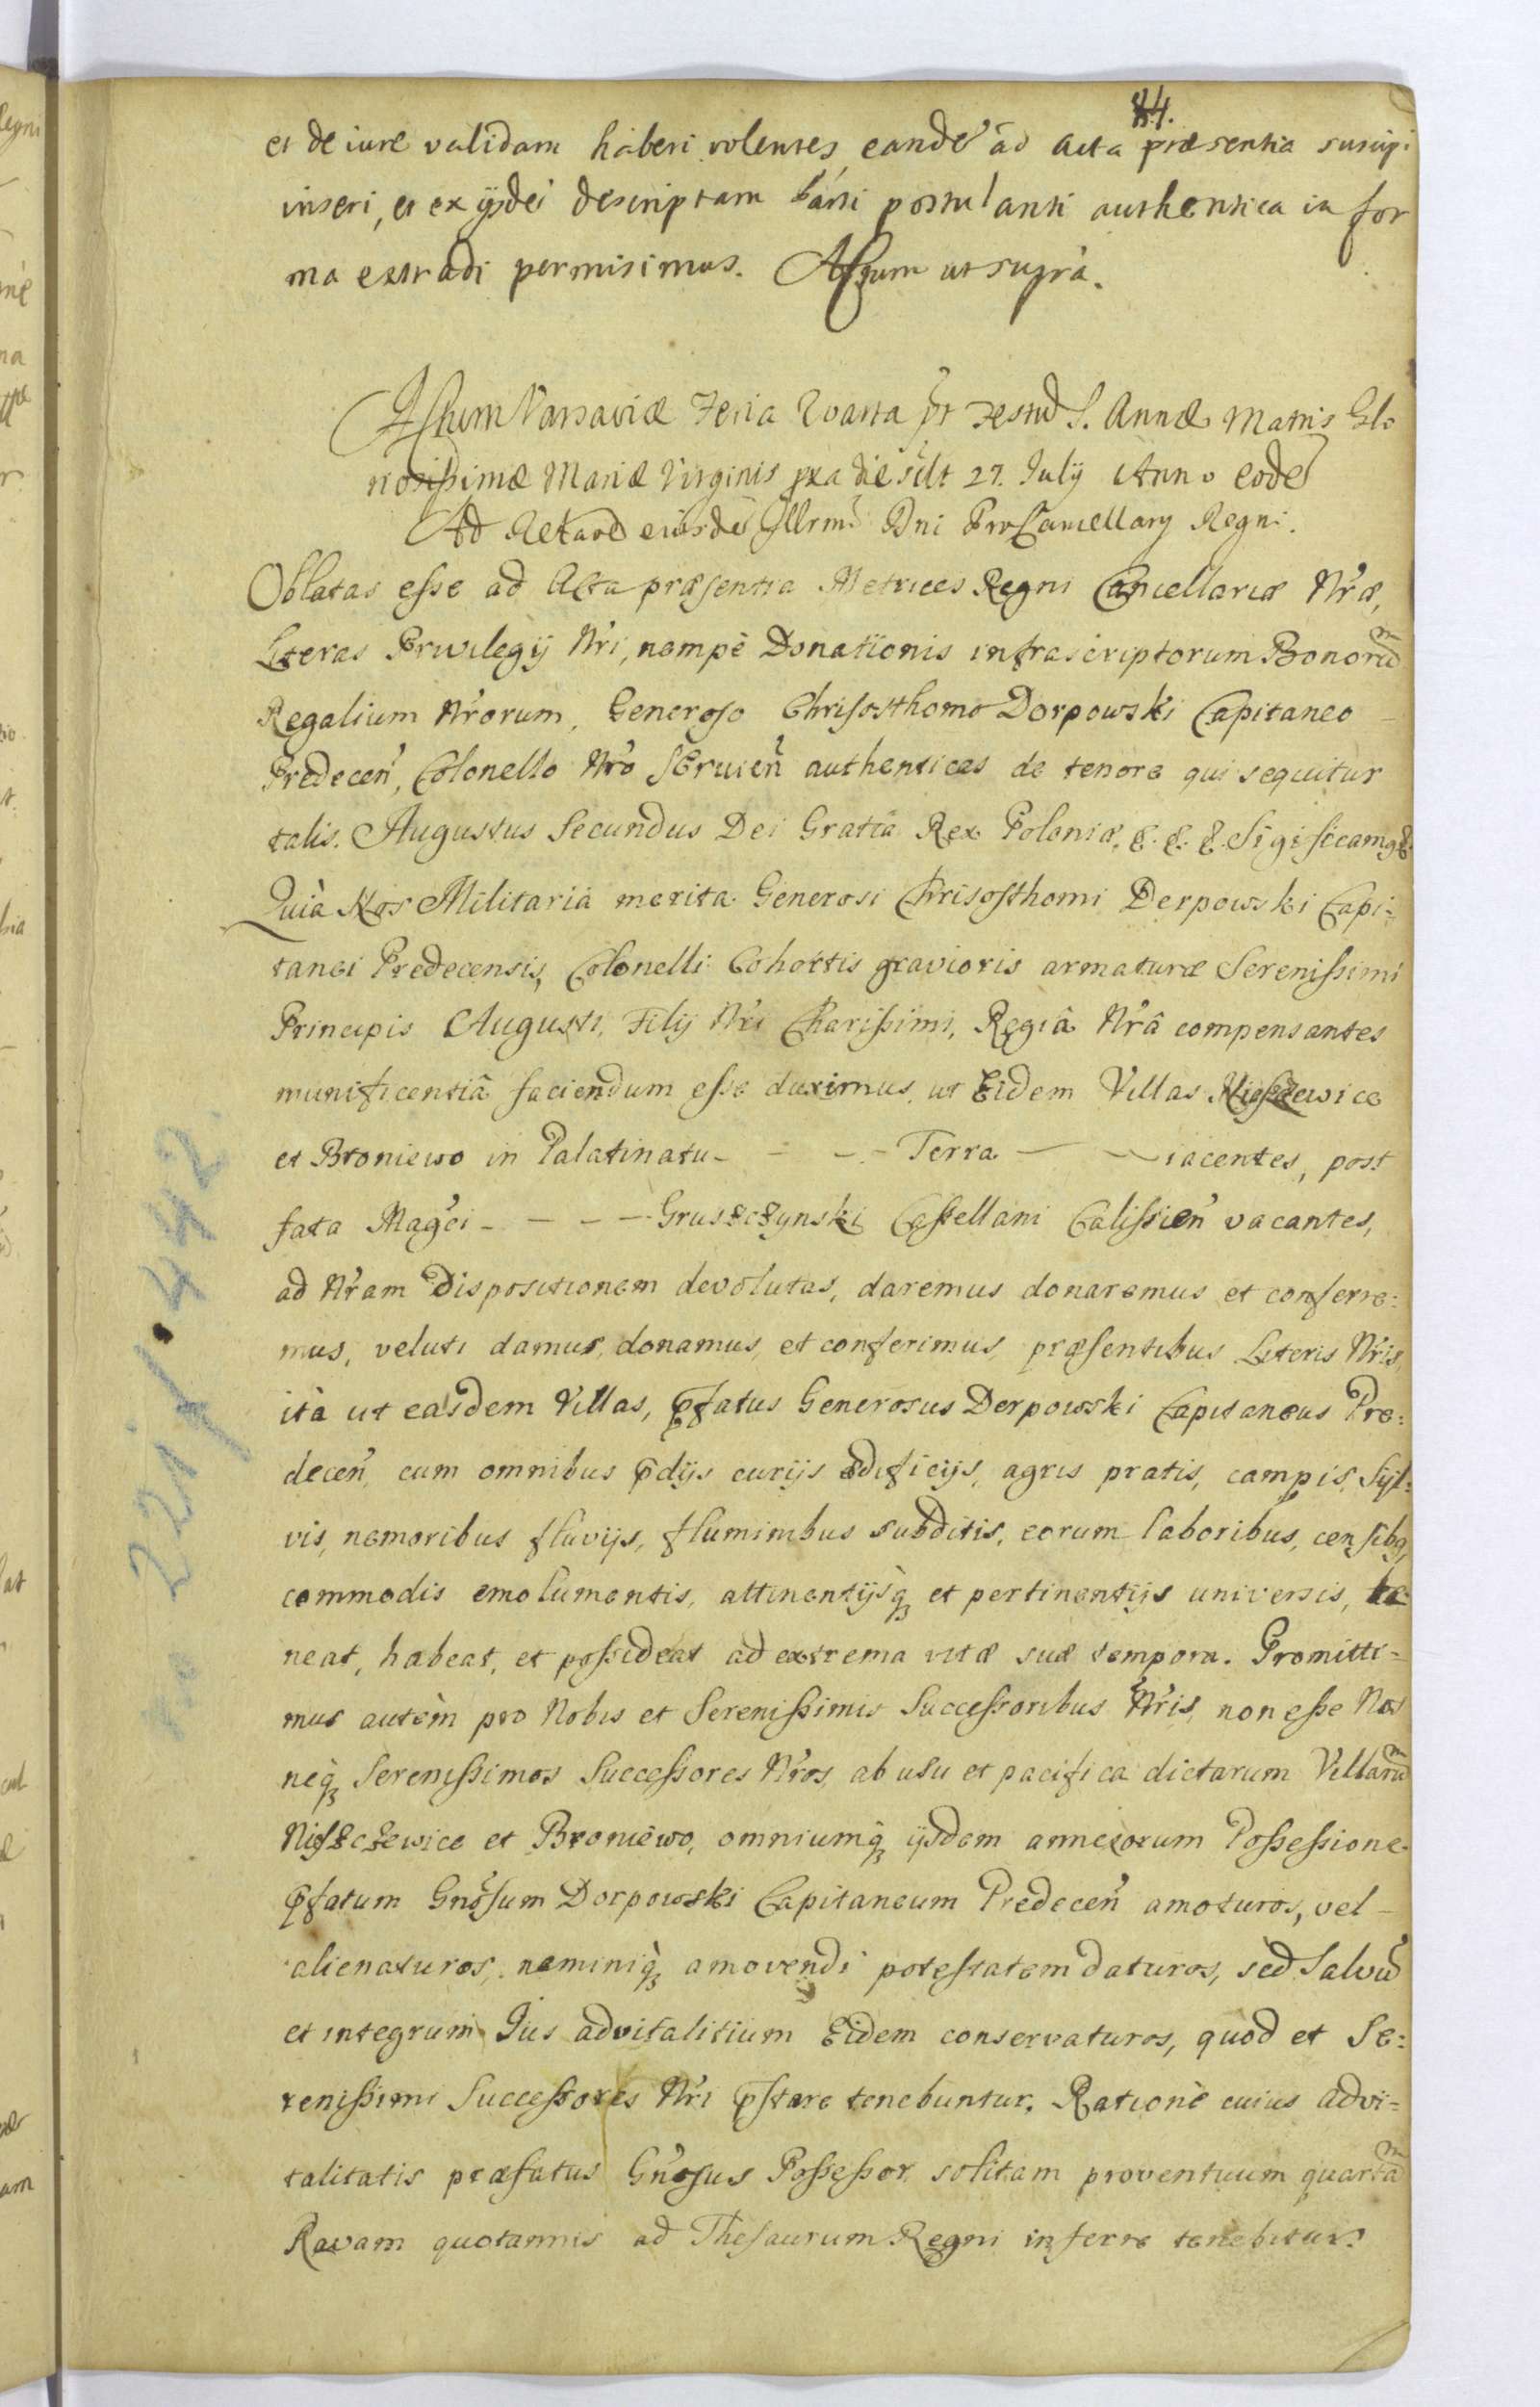 84.
et de iure validam haberi volentes, eandē ad acta præsentia suscipi
inseri, et ex ijsdē descriptam parti postulanti authentica in for
ma extradi permisimus. Actum ut supra.
Actum Varsaviæ Feria Quarta pt Festū S. Annæ Matris Glo
riosissimæ Mariæ Virginis die 27. July Anno eodē
Ad Relaōē eiusdē Illrmi Dni ProCancellary Regni.
Oblatas esse ad Acta præsentia Metrices Regni Cancellariæ Nr̃æ,
Literas Privilegij Nr̃i, nempè Donationis infrascriptorum Bonorū
Regalium Nr̃orum, Generoso Chrisosthomo Dorpowski Capitaneo
Predecen̄, Colonello Nr̃o Servien̄ authenticas de tenore qui sequitur
talis. Augustus Secundus Dei Gratia Rex Poloniæ, &. &. &. Sigīficamq̄
Quià Nos Militaria merita Generosi Chrisosthomi Derpowski Capi:
tanei Predecensis, Colonelli Cohortis gravioris armaturæ Serenissimi
Principis Augusti, Filij Nr̃i Charissimi, Regiâ Nr̃â compensantes
munificentiâ faciendum esse duximus, ut Eidem Villas Nieszewice
et Broniewo in Palatinatu - - - - Terra - - iacentes, post
fata Mag̃ci - - - - Gruszczynski Castellani Calissien̄ vacantes,
ad Nr̃am Dispositionem devolutas, daremus donaremus et conferre:
mus, veluti damus, donamus, et conferimus, præsentibus Literis Nr̃is,
ità ut easdem Villas, p̄fatus Generosus Derpowski Capitaneus Pre:
decen̄, cum omnibus p̄dijs curijs ædificijs, agris pratis, campis, Syl:
vis, nemoribus fluvijs, fluminibus subditis, eorum laboribus, censibq,
commodis emolumentis, attinentijsq̀, et pertinentijs universis, te
neat, habeat, et possideat ad extrema vitæ suæ tempora. Promitti=
mus autèm pro Nobis et Serenissimis Successoribus Nr̃is, non esse Nos
neq̀, Serenissimos Successores Nr̃os, ab usu et pacifica dictarum Villarū
Niszczewice et Broniewo, omniumq̀, ijsdem annexorum Possessione
p̄fatum Gnōsum Dorpowski Capitaneum Predecen̄ amoturos, vel
alienaturos, neminiq̀, amovendi potestatem daturos, sed Salvū
et integrum Ius advitalitium Eidem conservaturos, quod et Se:
renissimi Successores Nr̃i p̄stare tenebuntur. Ratione cuius advi=
talitatis præfatus Gnōsus Possessor solitam proventuum quartā
Ravam quotannis ad Thesaurum Regni inferre tenebitur.